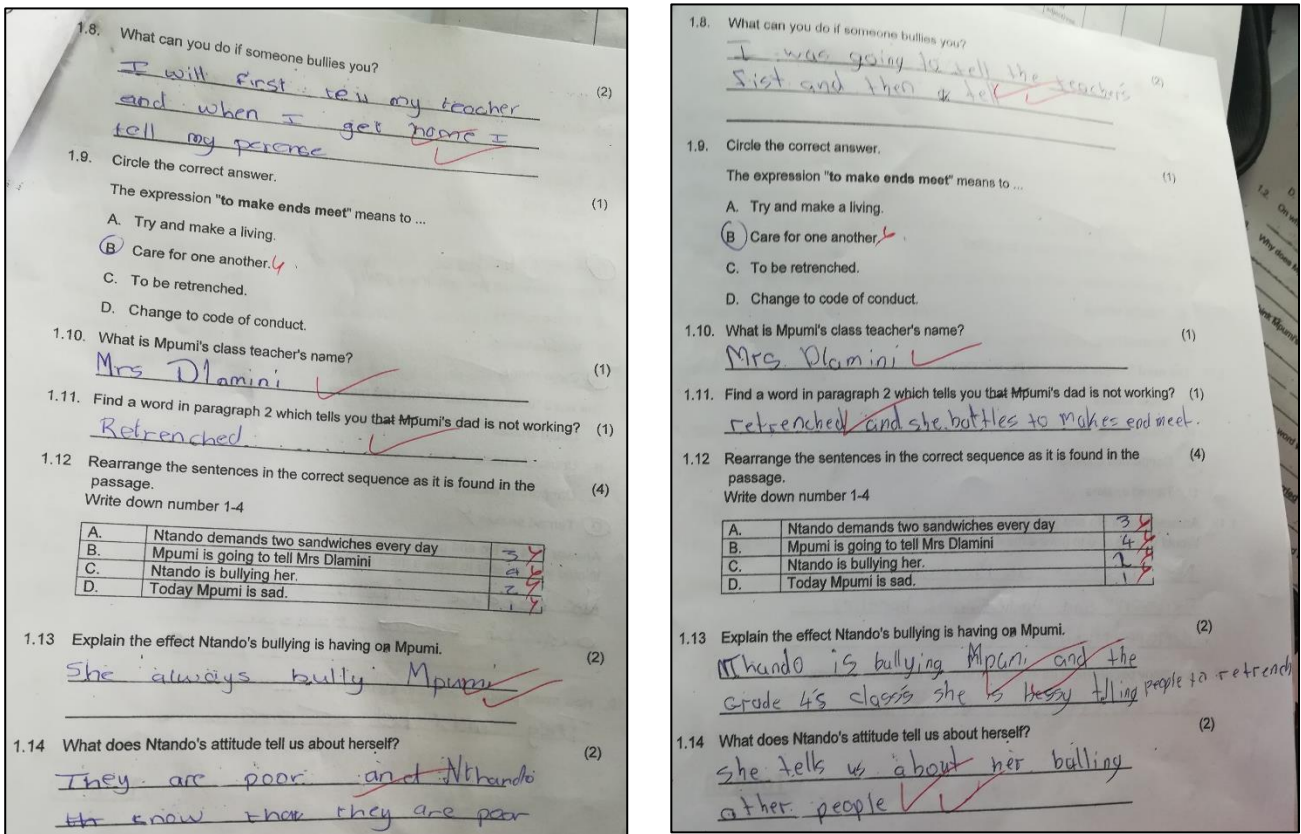 1.8. What can you do if someone bullies you?
I will first tell my teacher (2)
and when I get home I
tell my perence
1.9. Circle the correct answer.
The expression "to make ends meet" means to ... (1)
A. Try and make a living.
B Care for one another.
C. To be retrenched.
D. Change to code of conduct.
1.10. What is Mpumi's class teacher's name?
Mrs Dlamini (1)
1.11. Find a word in paragraph 2 which tells you that Mpumi's dad is not working? (1)
Retrenched
1.12 Rearrange the sentences in the correct sequence as it is found in the (4)
passage.
Write down number 1-4
A. Ntando demands two sandwiches every day 3
B. Mpumi is going to tell Mrs Dlamini 4
C. Ntando is bullying her. 2
D. Today Mpumi is sad. 1
1.13 Explain the effect Ntando's bullying is having on Mpumi. (2)
She always bully Mpumi
1.14 What does Ntando's attitude tell us about herself? (2)
They are poor and Nthando
know that they are poor
1.8. What can you do if someone bullies you?
I was going to tell the teachers (2)
fist and then tell
1.9. Circle the correct answer.
The expression "to make ends meet" means to ... (1)
A. Try and make a living.
B Care for one another
C. To be retrenched.
D. Change to code of conduct.
1.10. What is Mpumi's class teacher's name? (1)
Mrs. Dlamini
1.11. Find a word in paragraph 2 which tells you that Mpumi's dad is not working? (1)
retrenched and she battles to makes end meet.
1.12 Rearrange the sentences in the correct sequence as it is found in the (4)
passage.
Write down number 1-4
A. Ntando demands two sandwiches every day 3
B. Mpumi is going to tell Mrs Dlamini 4
C. Ntando is bullying her. 2
D. Today Mpumi is sad. 1
1.13 Explain the effect Ntando's bullying is having on Mpumi. (2)
Nthando is bullying Mpuni and the
Grade 4's class's she is tlling people to retrench
1.14 What does Ntando's attitude tell us about herself? (2)
she tells us about her balling
other people
1.2.
Why does